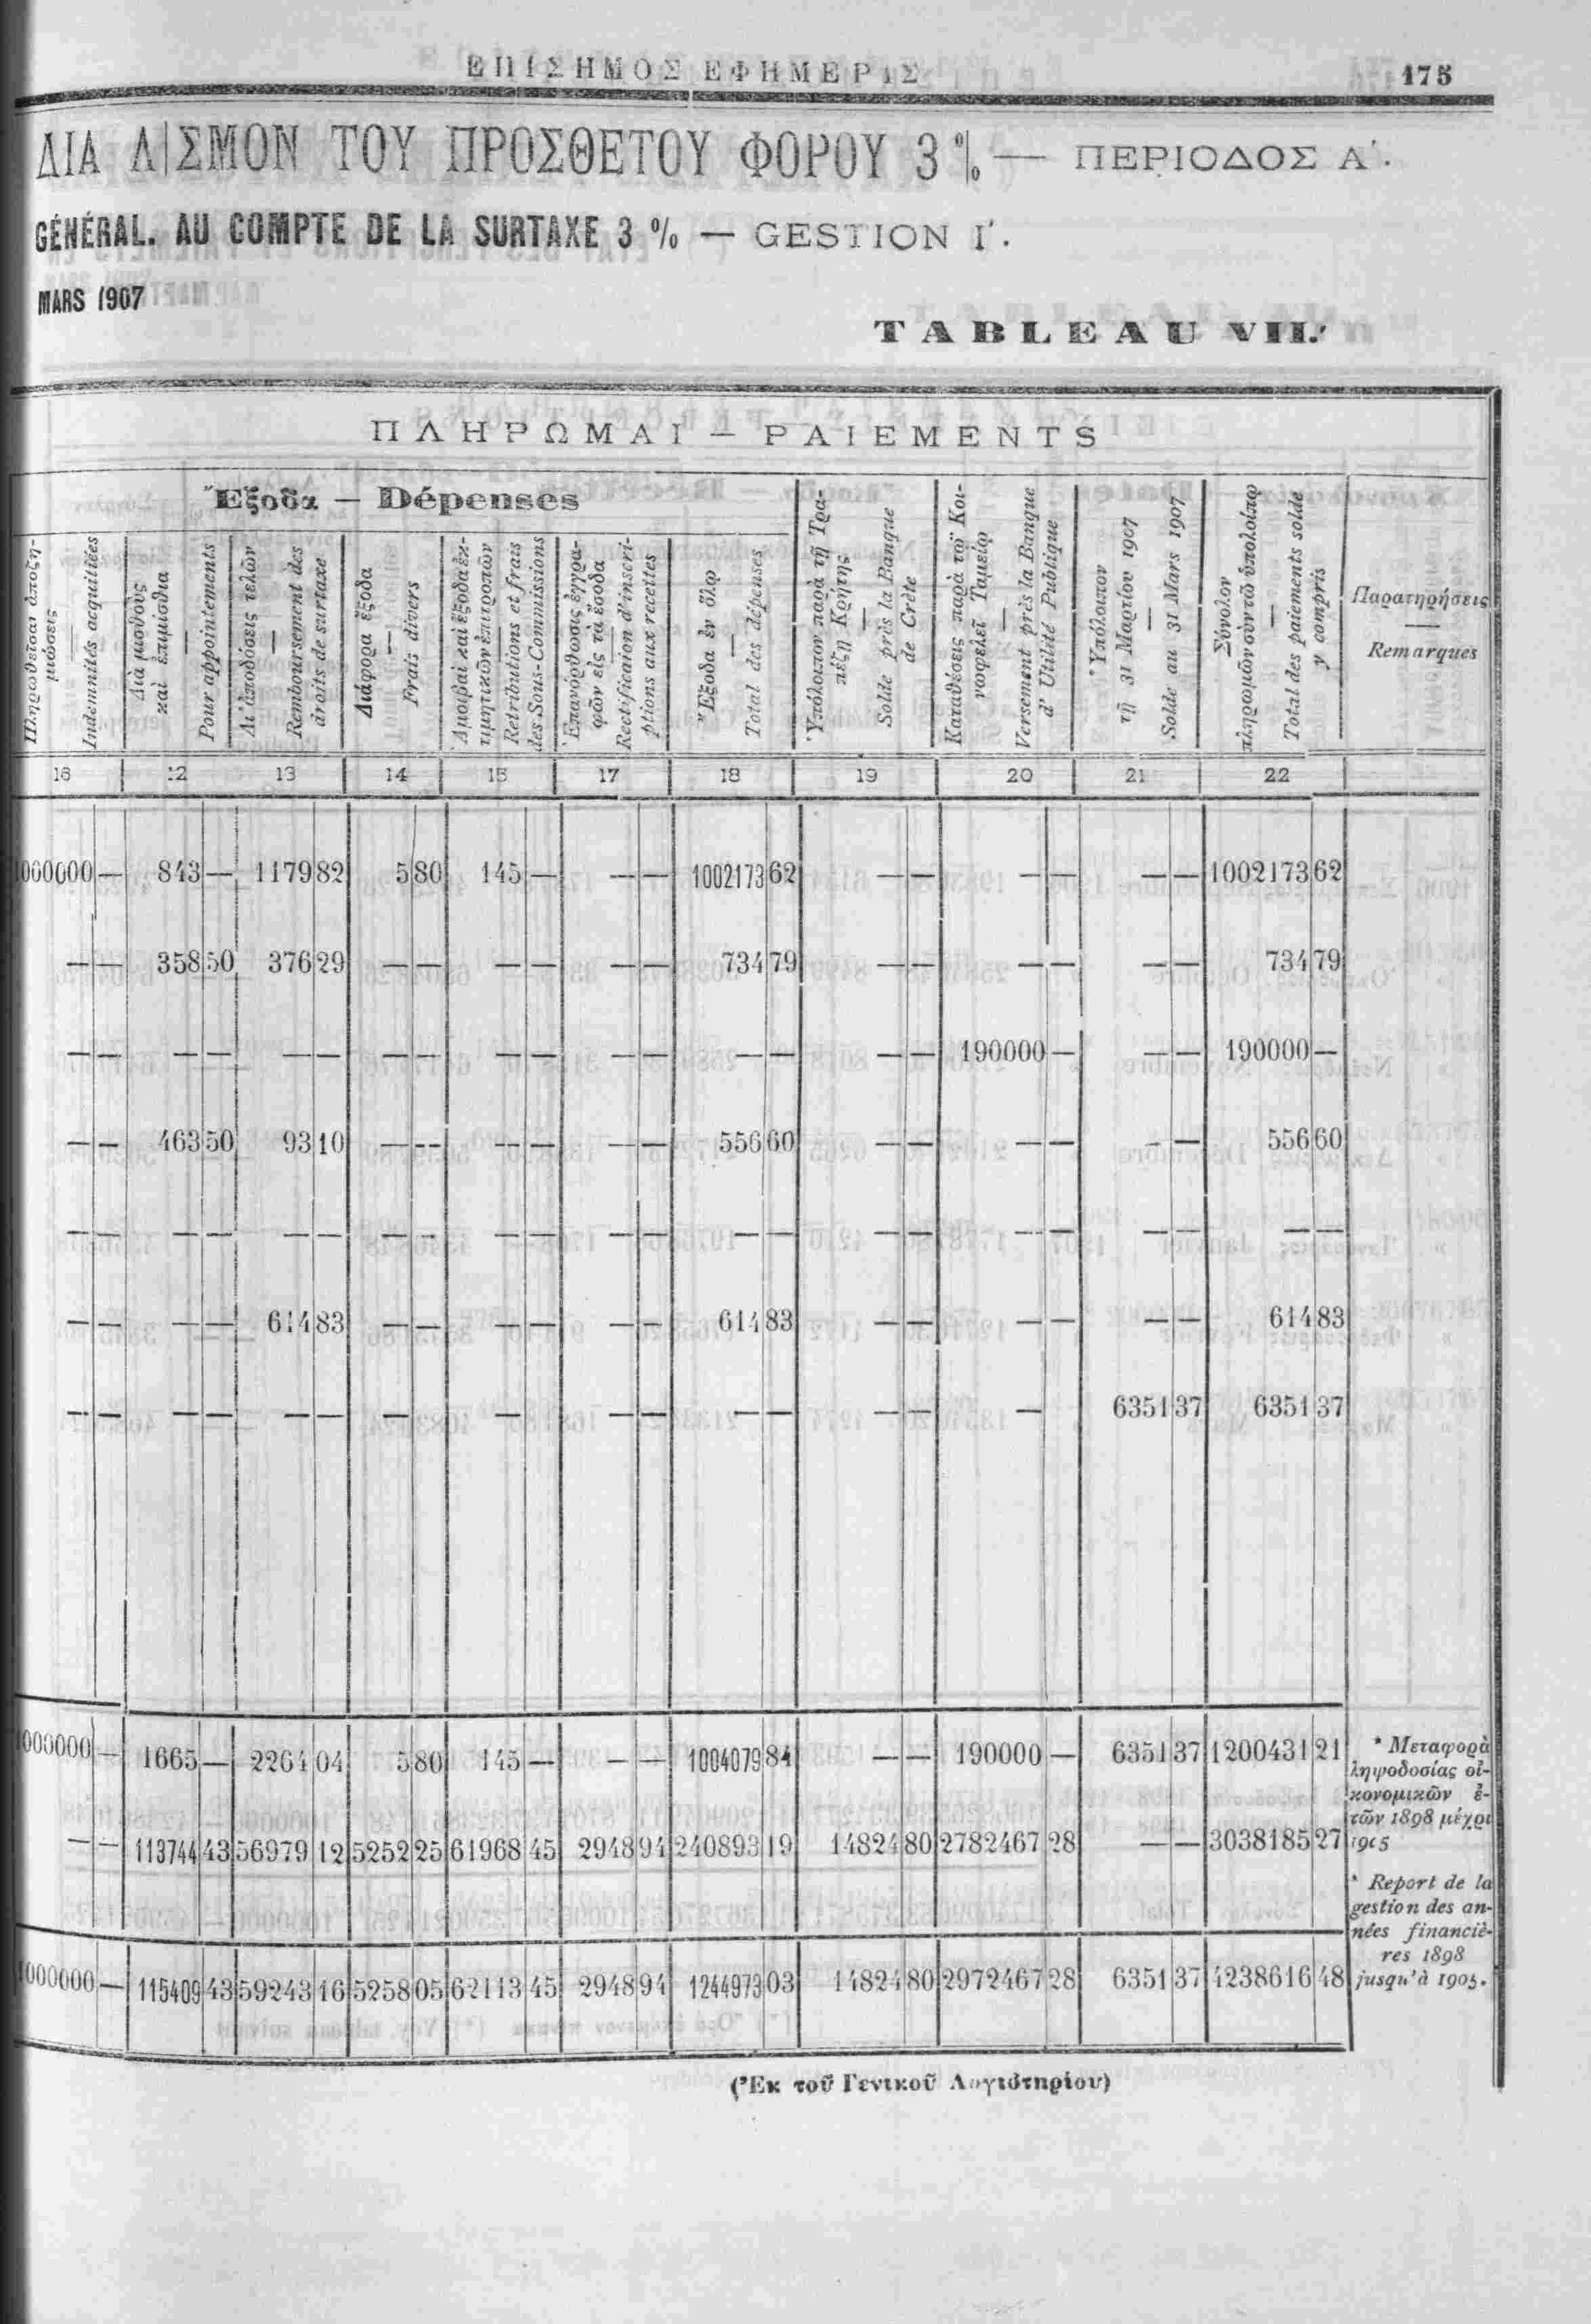 ΕΠΙΣΗΜΟΣ ΕΦΗΜΕΡΙΣ 175
ΔΙΑ ΛΙΣΜΟΝ ΤΟΥ ΠΡΟΣΘΕΤΟΥ ΦΟΡΟΥ 3 % — ΠΕΡΙΟΔΟΣ Α΄.
GÉNÉRAL. AU COMPTE DE LA SURTAXE 3 % — GESTION I΄.
MARS 1907
TABLEAU VII.
ΠΛΗΡΩΜΑΙ — PAIEMENTS
Ἔξοδα — Dépenses
Πληρωθεῖσαι ἀποζη-
μιώσεις
—
Indemnités acquittées
Διὰ μισθοὺς
καὶ ἐπιμίσθια
—
Pour appointements
Αἱ ἀποδόσεις τελῶν
—
Remboursement des
droits de surtaxe
Διάφορα ἔξοδα
—
Frais divers
Ἀμοιβαὶ καὶ ἔξοδα ἐκ-
τιμητικῶν ἐπιτροπῶν
—
Retributions et frais
des Sous-Commissions
Ἐπανόρθωσις ἐγγρα-
φῶν εἰς τὰ ἔσοδα
—
Rectification d'inscri-
ptions aux recettes
Ἔξοδα ἐν ὅλῳ
—
Total des dépenses
Ὑπόλοιπον παρὰ τῇ Τρα-
πέζῃ Κρήτης
—
Solde près la Banque
de Crète
Καταθέσεις παρὰ τῷ Κοι-
νωφελεῖ Ταμείῳ
—
Versement près la Banque
d' Utilité Publique
Ὑπόλοιπον
τῇ 31 Μαρτίου 1907
—
Solde au 31 Mars 1907
Σύνολον
πληρωμῶν σὺν τῷ ὑπολοίπῳ
—
Total des paiements solde
y compris
Παρατηρήσεις
—
Remarques
16 12 13 14 15 17 18 19 20 21 22
1000000 — 843 — 1179 82 5 80 145 — — — 1002173 62 — — — — — — 1002173 62
— — 358 50 376 29 — — — — — — 734 79 — — — — — — 734 79
— — — — — — — — — — — — — — — — 190000 — — — 190000 —
— — 463 50 93 10 — — — — — — 556 60 — — — — — — 556 60
— — — — — — — — — — — — — — — — — — — — — —
— — — — 614 83 — — — — — — 614 83 — — — — — — 614 83
— — — — — — — — — — — — — — — 6351 37 6351 37
1000000 — 1665 — 2264 04 5 80 145 — — — 1004079 84 — — 190000 — 6351 37 1200431 21
— — 113744 43 56979 12 5252 25 61968 45 2948 94 240893 19 14824 80 2782467 28 — — 3038185 27
1000000 — 115409 43 59243 16 5258 05 62113 45 2948 94 1244973 03 14824 80 2972467 28 6351 37 4238616 48
* Μεταφορὰ
ληψοδοσίας οἰ-
κονομικῶν ἐ-
τῶν 1898 μέχρι
1905
* Report de la
gestion des an-
nées financiè-
res 1898
jusqu'à 1905.
(Ἐκ τοῦ Γενικοῦ Λογιστηρίου)